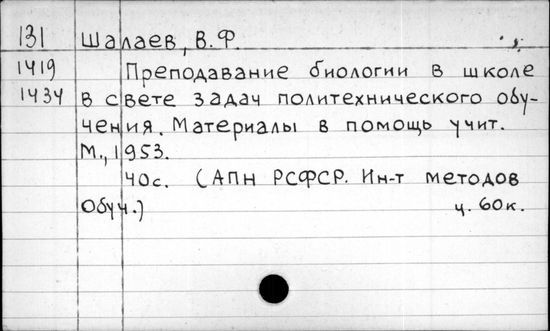 131 Шалаев, В.Ф.
1419 Преподавание биологии в школе
1434 в свете задач политехнического обу-
чения. Материалы в помощь учит.
М., 1953.
40с. (АПН РСФСР. Ин-т методов
Обуч.) ц. 60к.